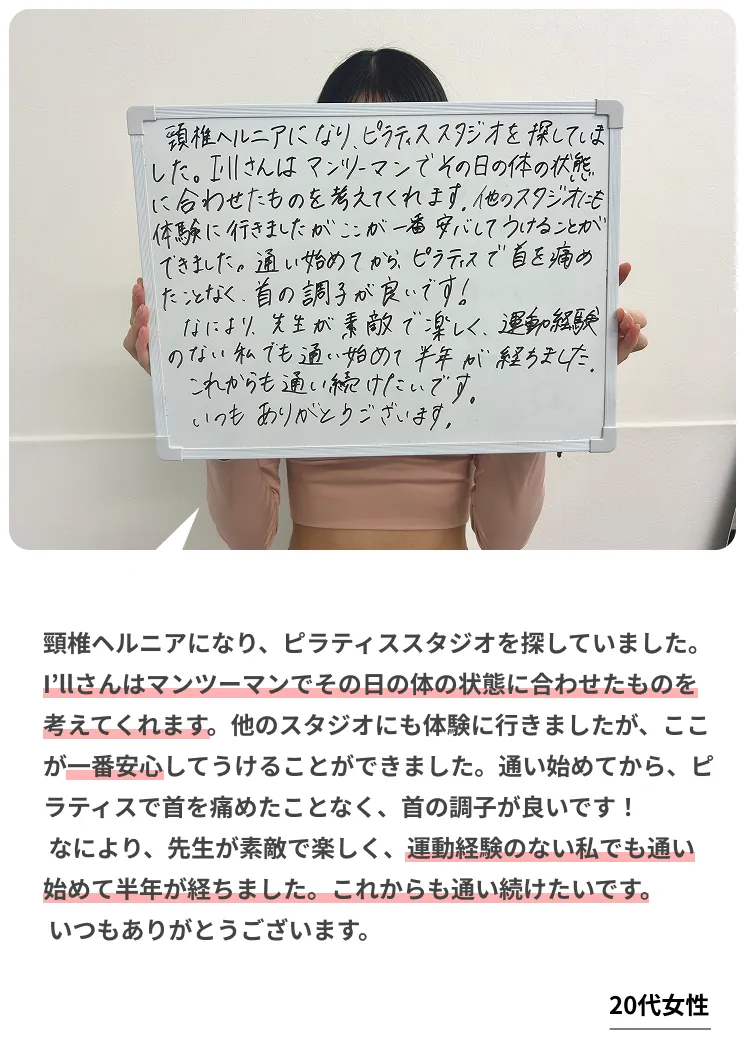 頸椎ヘルニアになり、ピラティススタジオを探していま
した。I'llさんは マンツーマンでその日の体の状態
に合わせたものを考えてくれます。他のスタジオにも
体験に行きましたが ここが一番安心してうけることが
できました。通い始めてから、ピラティスで首を痛め
たことなく、首の調子が良いです!
なにより、先生が素敵で楽しく、運動経験
のない私でも通い始めて半年が経ちました。
これからも通い続けたいです。
いつも ありがとうございます。
頸椎ヘルニアになり、ピラティススタジオを探していました。
I’llさんはマンツーマンでその日の体の状態に合わせたものを
考えてくれます。他のスタジオにも体験に行きましたが、ここ
が一番安心してうけることができました。通い始めてから、ピ
ラティスで首を痛めたことなく、首の調子が良いです！
なにより、先生が素敵で楽しく、運動経験のない私でも通い
始めて半年が経ちました。これからも通い続けたいです。
いつもありがとうございます。
20代女性